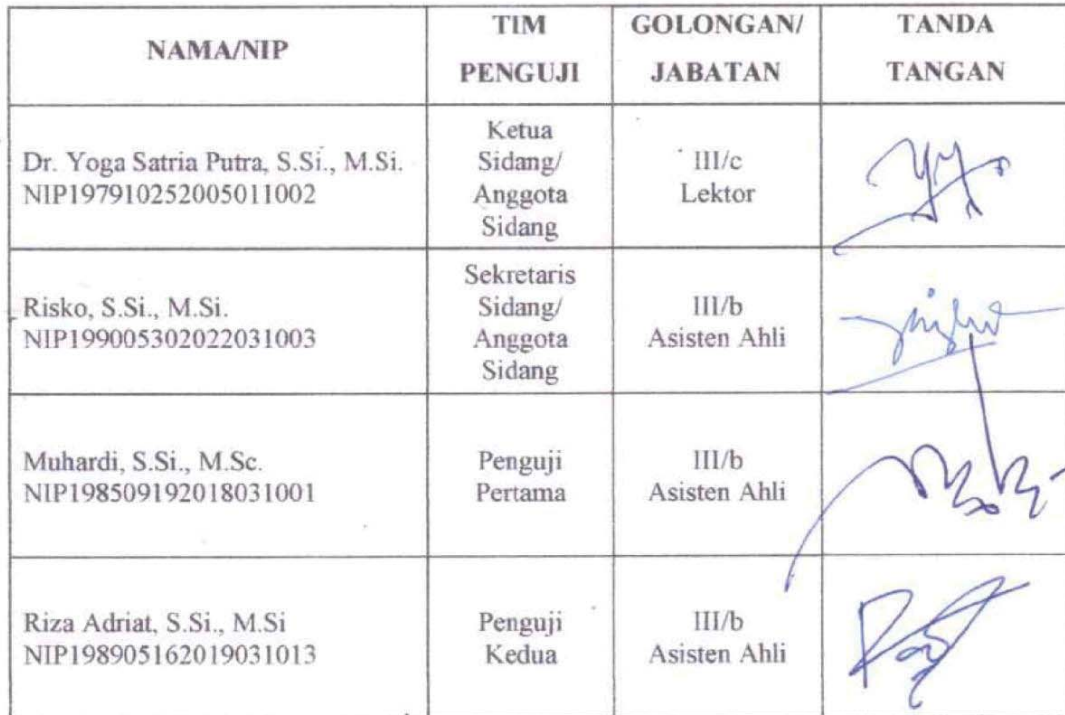 NAMA/NIP
TIM
PENGUJI
GOLONGAN/
JABATAN
TANDA
TANGAN
Dr. Yoga Satria Putra, S.Si., M.Si.
NIP197910252005011002
Ketua
Sidang/
Anggota
Sidang
III/c
Lektor
Risko, S.Si., M.Si.
NIP199005302022031003
Sekretaris
Sidang/
Anggota
Sidang
III/b
Asisten Ahli
Muhardi, S.Si., M.Sc.
NIP198509192018031001
Penguji
Pertama
III/b
Asisten Ahli
Riza Adriat, S.Si., M.Si
NIP198905162019031013
Penguji
Kedua
III/b
Asisten Ahli